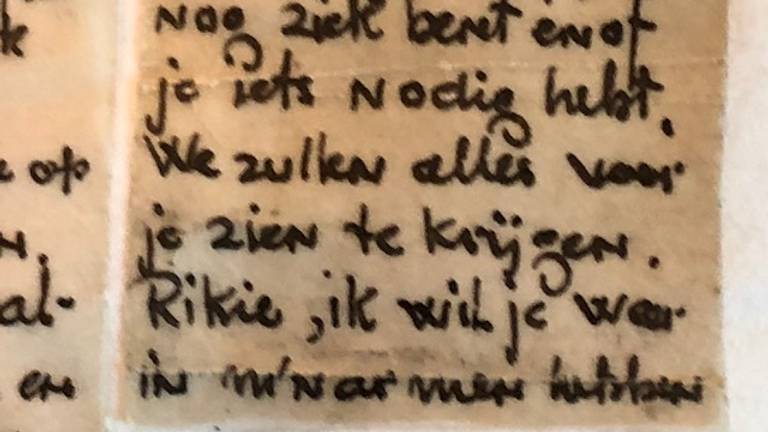 nog ziek bent en of
je iets nodig hebt.
op We zullen alles voor
n. je zien te krijgen.
al- Rikie, ik wil je weer
en in m'n armen hebben